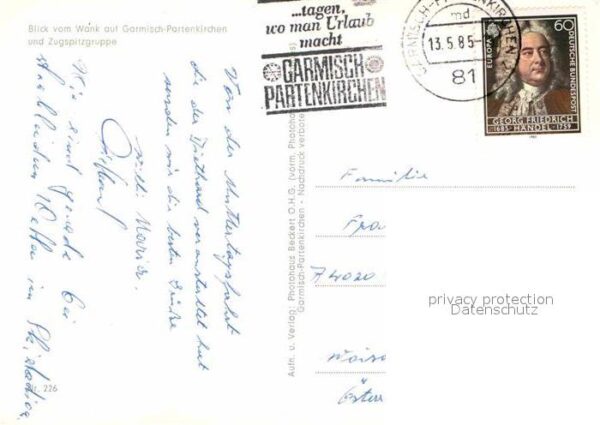 Blick vom Wank auf Garmisch-Partenkirchen
und Zugspitzgruppe
...tagen,
wo man Urlaub
macht
GARMISCH-
PARTENKIRCHEN
GARMISCH-PARTENKIRCHEN
md
13.5.85
81
60
DEUTSCHE BUNDESPOST
EUROPA
GEORG FRIEDRICH
1685 HÄNDEL 1759
Von der Muttertagsfahrt
die der Diethard veranstaltet hat
senden wir die besten Grüße
Maria
Wir sind gerade bei
in
Aufn. u. Verlag: Photohaus Beckert O.H.G. (vorm. Photohaus
Garmisch-Partenkirchen - Nachdruck verboten
Familie
A 4020
privacy protection
Datenschutz
Nr. 226